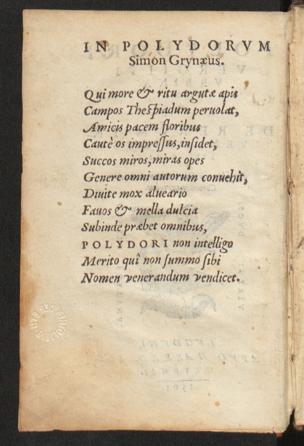 IN POLYDORVM
Simon Grynæus.
Qui more & ritu argutæ apis
Campos Thespiadum peruolat,
Amicis pacem floribus
Cautè os impressus, insidet,
Succos miros, miras opes
Genere omni autorum conuehit,
Diuite mox alueario
Fauos & mella dulcia
Subinde præbet omnibus,
POLYDORI non intelligo
Merito quî non summo sibi
Nomen venerandum vendicet.